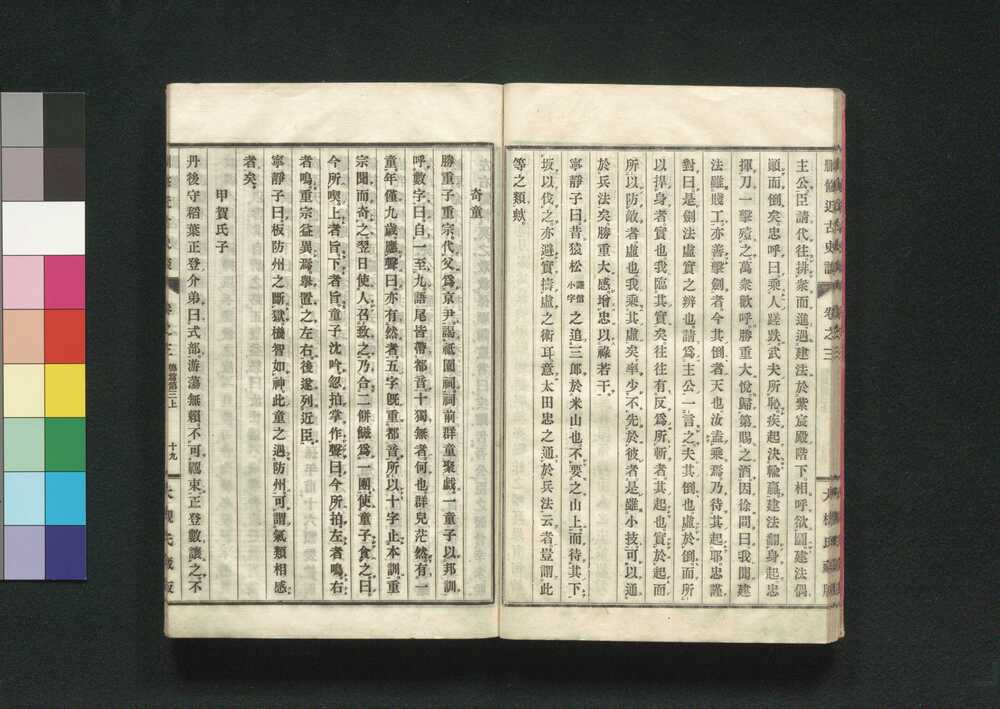 近古史談
卷之三
主公臣請代往排衆而進過建法於紫宸殿階下相呼欲鬪建法偶
蹟而倒矣忠呼曰乘人蹉跌武夫所恥疾起決輸贏建法翻身起忠
揮刀一擊殪之萬衆歡呼勝重大悅歸第賜之酒因徐問曰我聞建
法雖賤工亦善擊劍者今其倒者天也汝盍乘焉乃待其起耶忠謹
對曰是劍法虛實之辨也請爲主公一言之夫其倒也虛於倒而所
以捍身者實也我臨其實矣往往有反爲所斬者其起也實於起而
所以防敵者虛也我乘其虛矣率少不先於彼者是雖小技可以通
於兵法矣勝重大感增忠以祿若干
寧靜子曰昔猿松謙信小字之追三郎於米山也不要之山上而待其下
坂以伐之亦避實擣虛之術耳意太田忠之通於兵法云者豈謂此
等之類歟
奇童
勝重子重宗代父爲京尹謁祇園祠祠前群童聚戲一童子以邦訓
呼數字曰自一至九語尾皆帶都音十獨無者何也群兒茫然有一
童年僅九歲應聲曰亦有然者五字既重都音所以十字止本訓重
宗聞而奇之翌日使人召致之乃合二餠餤爲一團使童子食之曰
今所喫上者旨下者旨童子沈吟忽拍掌作聲曰今所拍左者鳴右
者鳴重宗益異焉擧置之左右後遂列近臣
寧靜子曰板防州之斷獄機智如神此童之遇防州可謂氣類相感
者矣
甲賀氏子
丹後守稻葉正登介弟曰式部游蕩無賴不可羈束正登數讓之不
卷之三
德篇第三上
十九
大槻氏藏版